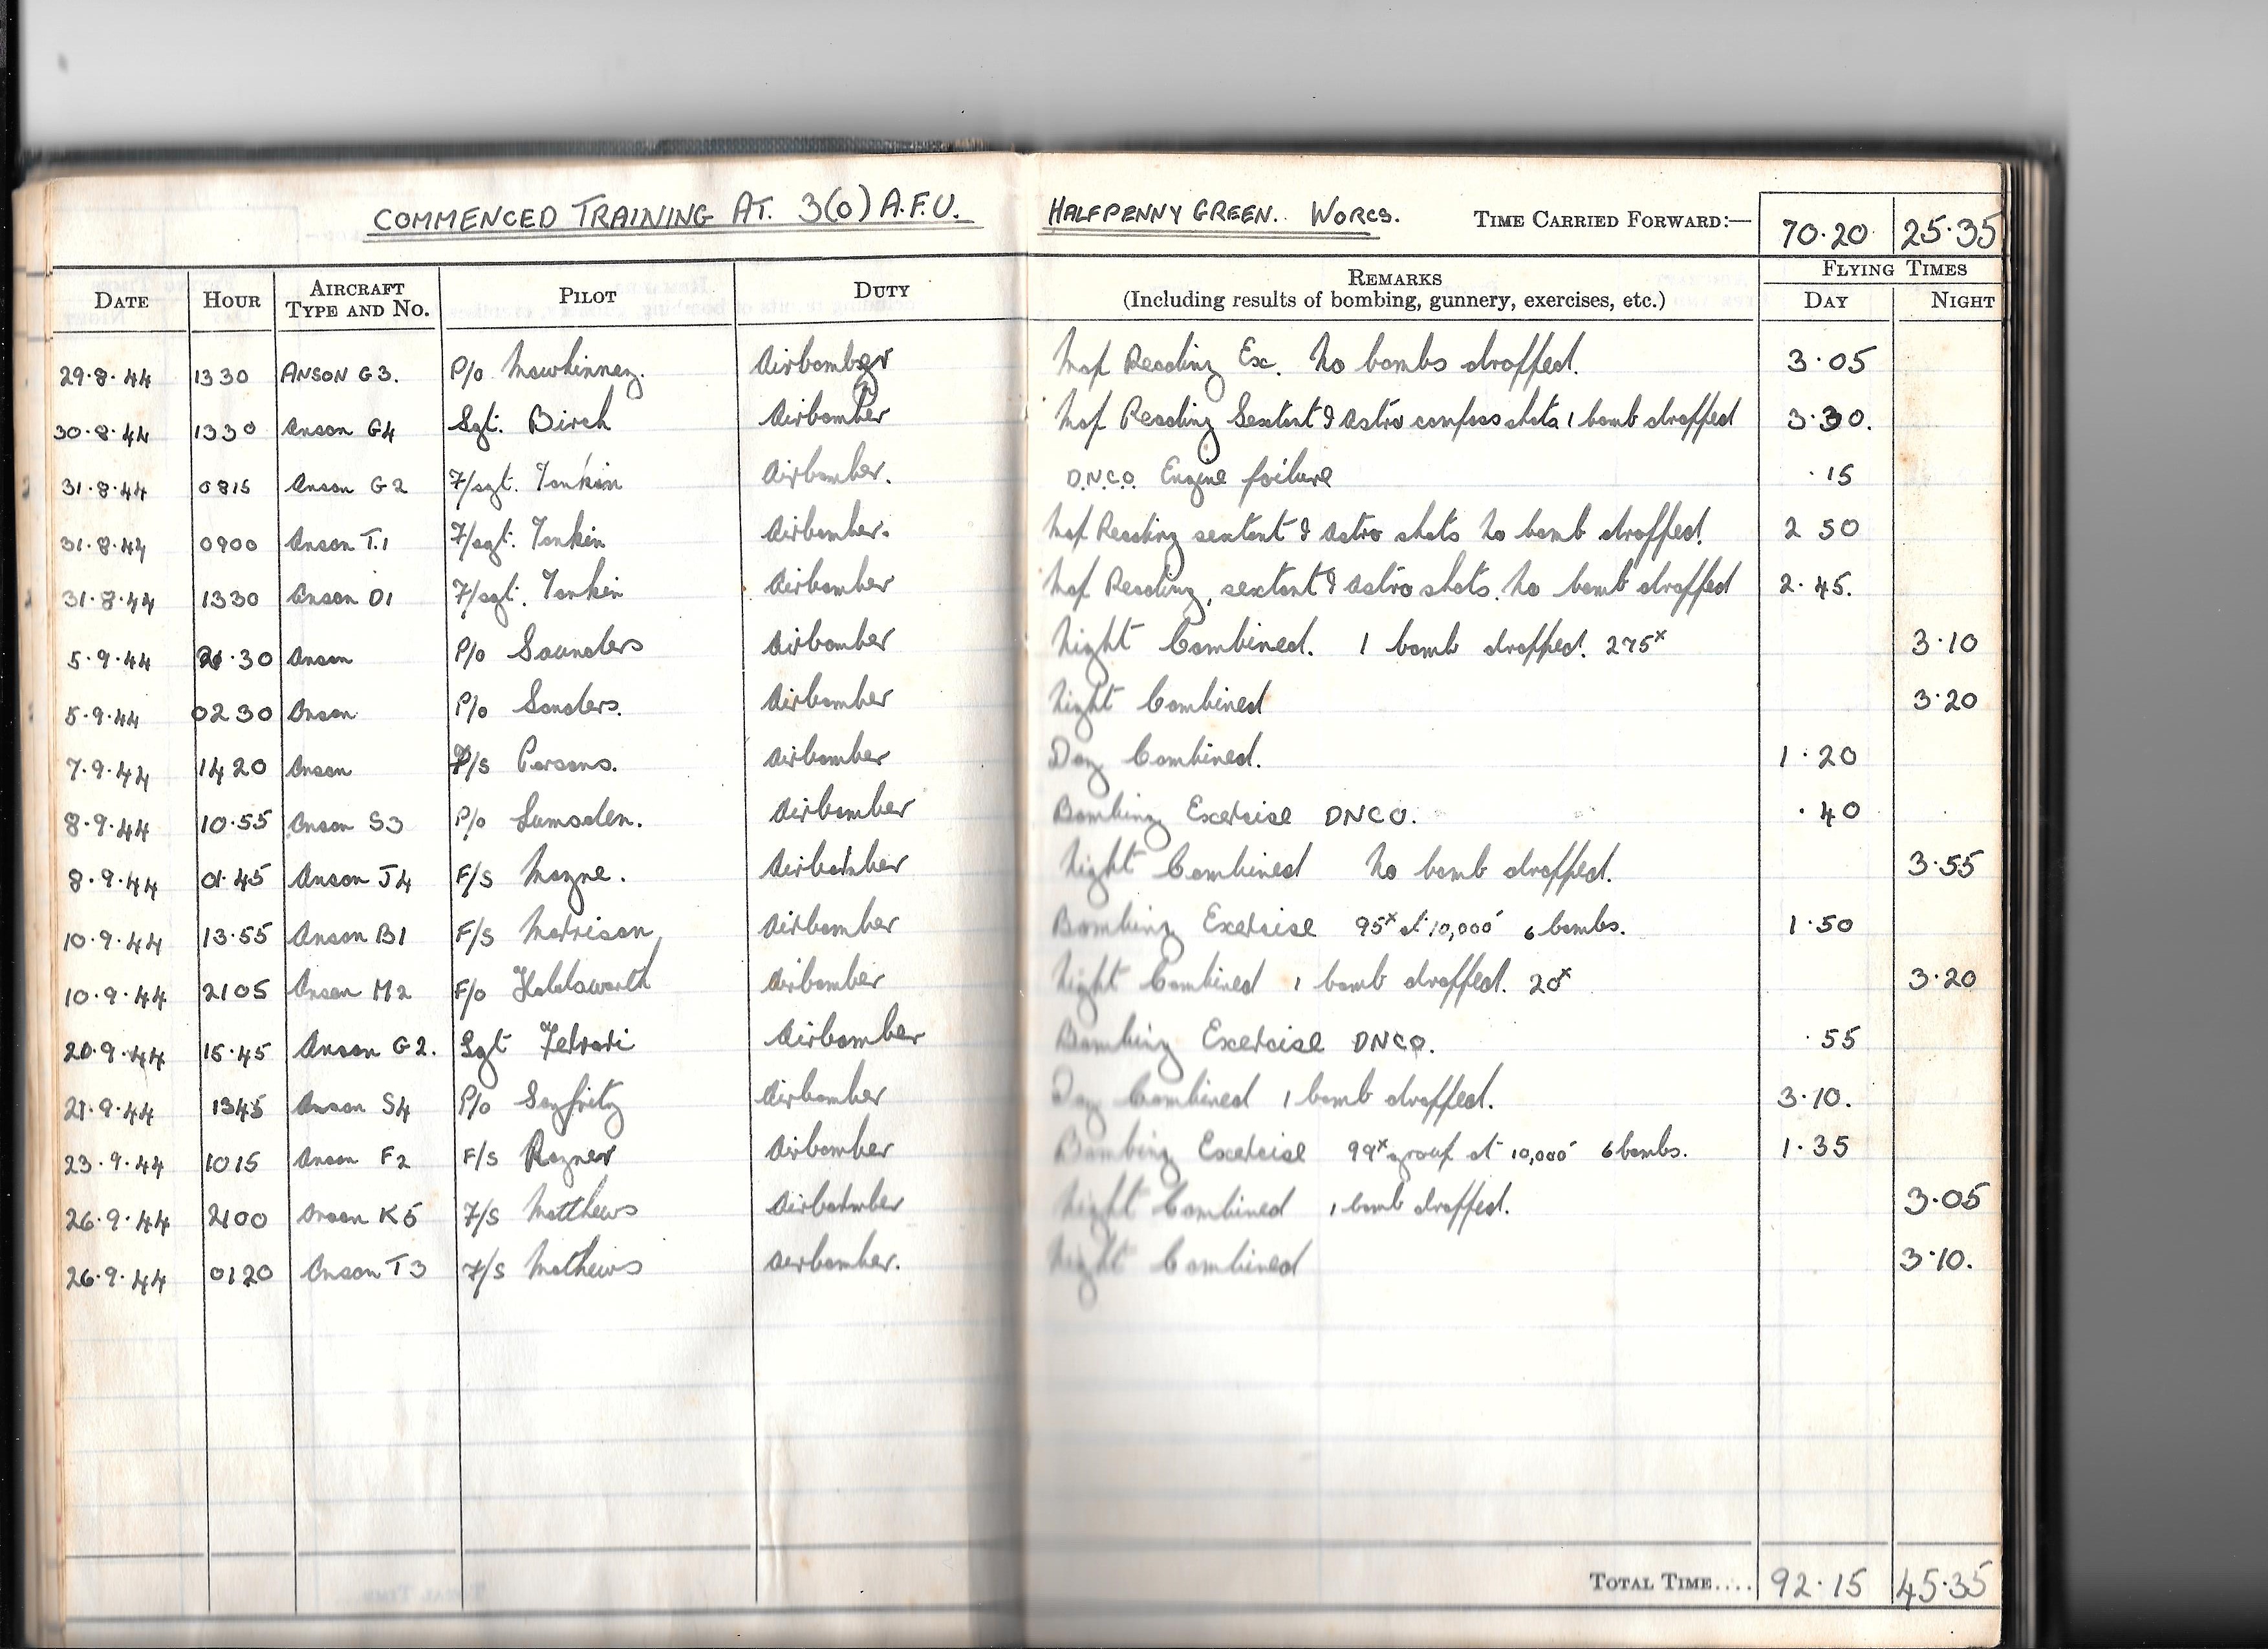 COMMENCED TRAINING AT. 3(O) A.F.U. HALFPENNY GREEN. WORCS. TIME CARRIED FORWARD:— 70·20 25·35
DATE HOUR AIRCRAFT TYPE AND NO. PILOT DUTY REMARKS (Including results of bombing, gunnery, exercises, etc.) FLYING TIMES DAY NIGHT
29·8·44 1330 ANSON G3. P/o Mawhinney. Airbomber Map Reading Ex. No bombs dropped. 3·05
30·8·44 1330 Anson G4 Sgt. Birch Airbomber Map Reading Sextant & Astro compass shots 1 bomb dropped 3·30.
31·8·44 0815 Anson G2 F/sgt. Tonkin Airbomber. D.N.C.O. Engine failure ·15
31·8·44 0900 Anson T.1 F/sgt. Tonkin Airbomber. Map Reading sextant & Astro shots No bomb dropped. 2 50
31·8·44 1330 Anson O1 F/sgt. Tonkin Airbomber Map Reading, sextant & Astro shots. No bomb dropped 2·45.
5·9·44 ·30 Anson P/o Saunders Airbomber Night Combined. 1 bomb dropped. 275x 3·10
5·9·44 0230 Anson P/o Sanders. Airbomber Night Combined 3·20
7·9·44 1420 Anson F/s Parsons. Airbomber Day Combined. 1·20
8·9·44 10·55 Anson S3 P/o Lumsden. Airbomber Bombing Exercise DNCO. ·40
8·9·44 01·45 Anson J4 F/s Mayne. Airbomber Night Combined No bomb dropped. 3·55
10·9·44 13·55 Anson B1 F/s Morrison Airbomber Bombing Exercise 95x at 10,000' 6 bombs. 1·50
10·9·44 2105 Anson M2 F/o Holdsworth Airbomber Night Combined 1 bomb dropped. 20x 3·20
20·9·44 15·45 Anson G2. Sgt Airbomber Bombing Exercise DNCO. ·55
21·9·44 1345 Anson S4 P/o Sayfritz Airbomber Day Combined 1 bomb dropped. 3·10.
23·9·44 1015 Anson F2 F/s Rayner Airbomber Bombing Exercise 99x group at 10,000' 6 bombs. 1·35
26·9·44 2100 Anson K5 F/s Matthews Airbomber Night Combined 1 bomb dropped. 3·05
26·9·44 0120 Anson T3 F/s Mathews Airbomber. Night Combined 3·10.
TOTAL TIME.... 92·15 45·35